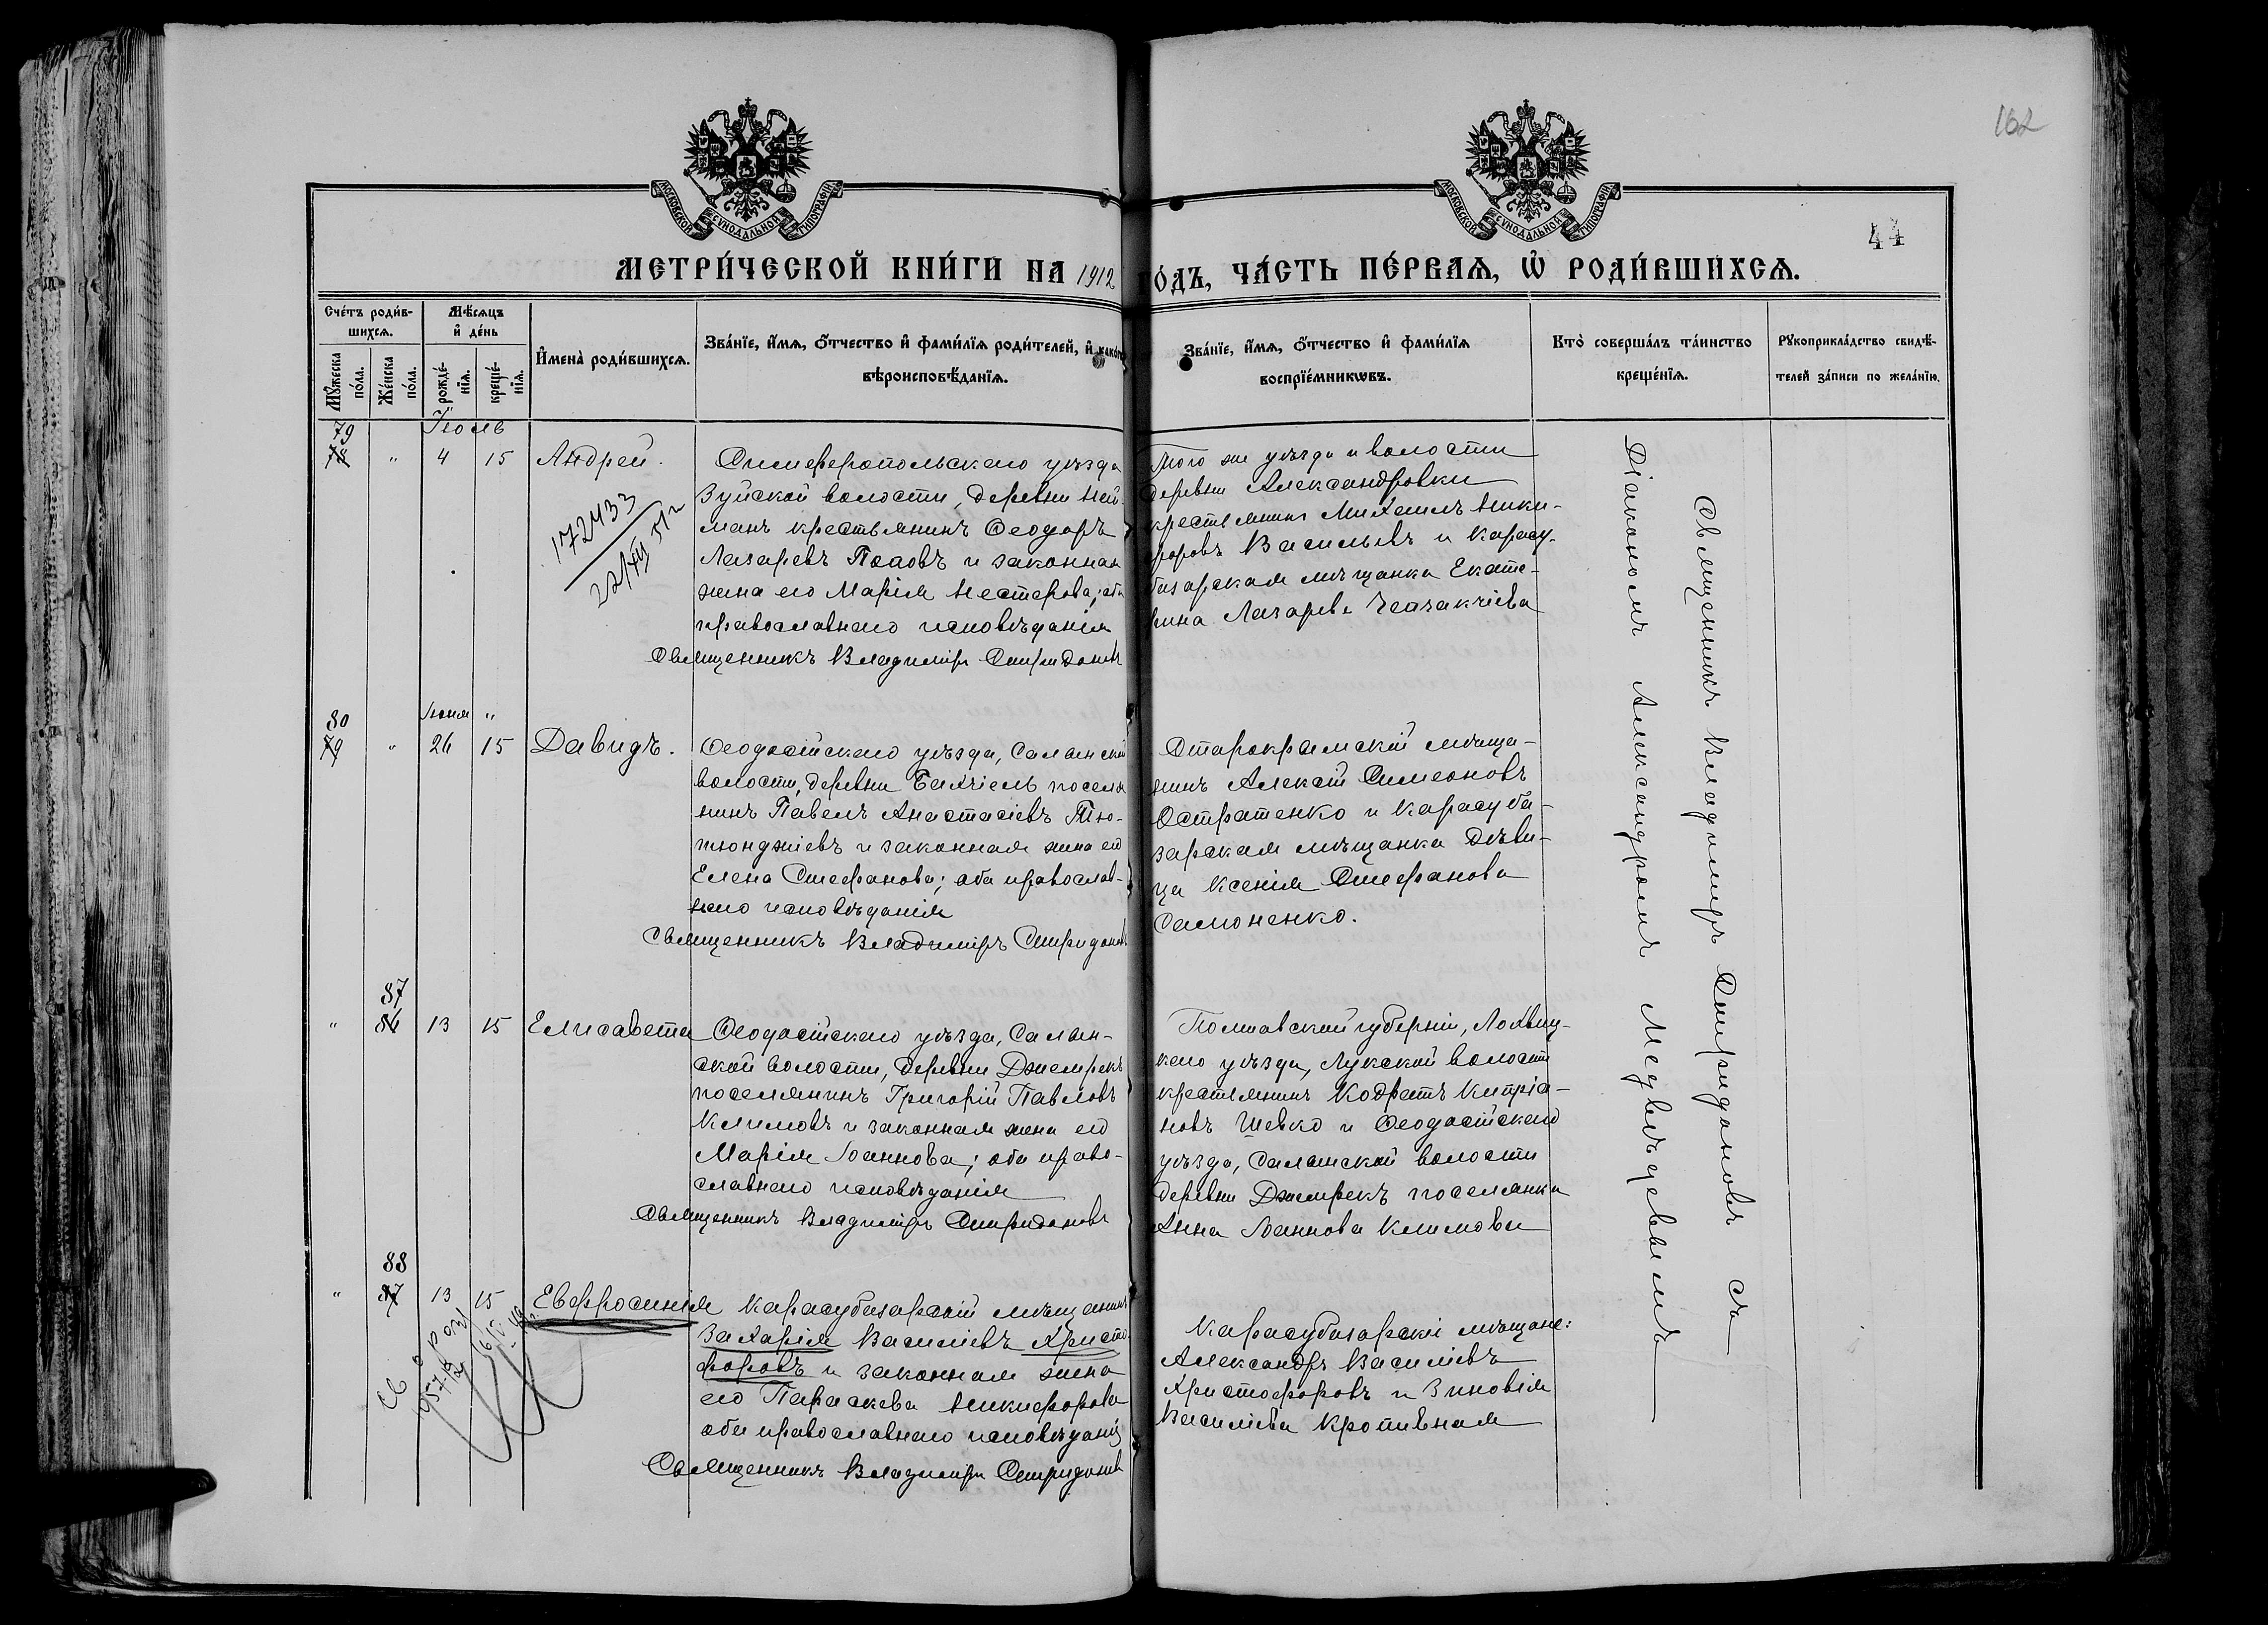 162
МОСКОВСКОЙ СѴНОДАЛЬНОЙ ТИПОГРАФІИ
МОСКОВСКОЙ СѴНОДАЛЬНОЙ ТИПОГРАФІИ
44
МЕТРИ́ЧЕСКОЙ КНИ́ГИ НА 1912
О́ДЪ, ЧА́СТЬ ПЕ́РВАѦ, Ѡ҆ РОДИ́ВШИХСѦ.
Сче́тъ роди́в-
шихсѧ.
Мꙋ́жеска
по́ла.
Же́нска
по́ла.
Мѣ́сѧцъ
и҆ де́нь
рожде́-
нїѧ.
креще́-
нїѧ.
И҆мена̀ роди́вшихсѧ.
Зва́нїе, и҆́мѧ, ѻ҆́тчество и҆ фами́лїѧ роди́телей, и҆ како́г
вѣроисповѣ́данїѧ.
Зва́нїе, и҆́мѧ, ѻ҆́тчество и҆ фами́лїѧ
воспрїе́мникѡвъ.
Кто̀ соверша́лъ та́инство
креще́нїѧ.
Рꙋкоприкла́дство свидѣ́-
телей за́писи по жела́нїю.
79
78 " Іюль 4 15 Андрей.
172433
22/XII 51г
Симферопольскаго уѣзда
Зуйской волости, деревни Ней-
манъ крестьянинъ Ѳеодоръ
Лазаревъ Поповъ и законная
жена его Марія Нестерова; оба
православнаго исповѣданія
Священникъ Владиміръ Спиридоновъ
Того же уѣзда и волости
деревни Александровки
крестьянинъ Михаилъ Ники-
форовъ Васильевъ и Карасу-
базарская мѣщанка Екате-
рина Лазарева
80
79 " Іюня 26 " 15 Давидъ.
Ѳеодосійскаго уѣзда, Салынской
волости, деревни Бахчіель поселя
нинъ Павелъ Анастасіевъ Тю-
тюнджіевъ и законная жена его
Елена Стефанова; оба православ-
наго исповѣданія
Священникъ Владиміръ Спиридоновъ
Старокрымскій мѣща-
нинъ Алексій Симеоновъ
Остратенко и Карасуба-
зарская мѣщанка дѣви-
ца Ксенія Стефанова
Самоненко.
87
" 86 13 15 Елисавета
Ѳеодосійскаго уѣзда, Салын-
ской волости, деревни Джемрекъ
поселянинъ Григорій Павловъ
Климовъ и законная жена его
Марія Іоаннова; оба право-
славнаго исповѣданія
Священникъ Владиміръ Спиридоновъ
Полтавской губерніи, Лохвиц-
каго уѣзда, Лукской волости
крестьянинъ Кодратъ Кипріа-
новъ Шевко и Ѳеодосійскаго
уѣзда, Салынской волости
деревни Джемрекъ поселянка
Анна Іоаннова Климова
88
" 87 13 15 Евфросинія
Карасубазарскій мѣщанинъ
Захарія Василіевъ Христо-
форовъ и законная жена
его Параскева Никифорова
оба православнаго исповѣданія
Священникъ Владиміръ Спиридоновъ
Карасубазарскіе мѣщане:
Александръ Василіевъ
Христофоровъ и Зиновія
Василіева Кропивная
Священникъ Владиміръ Спиридоновъ съ
Діакономъ Александромъ Медвѣдевымъ